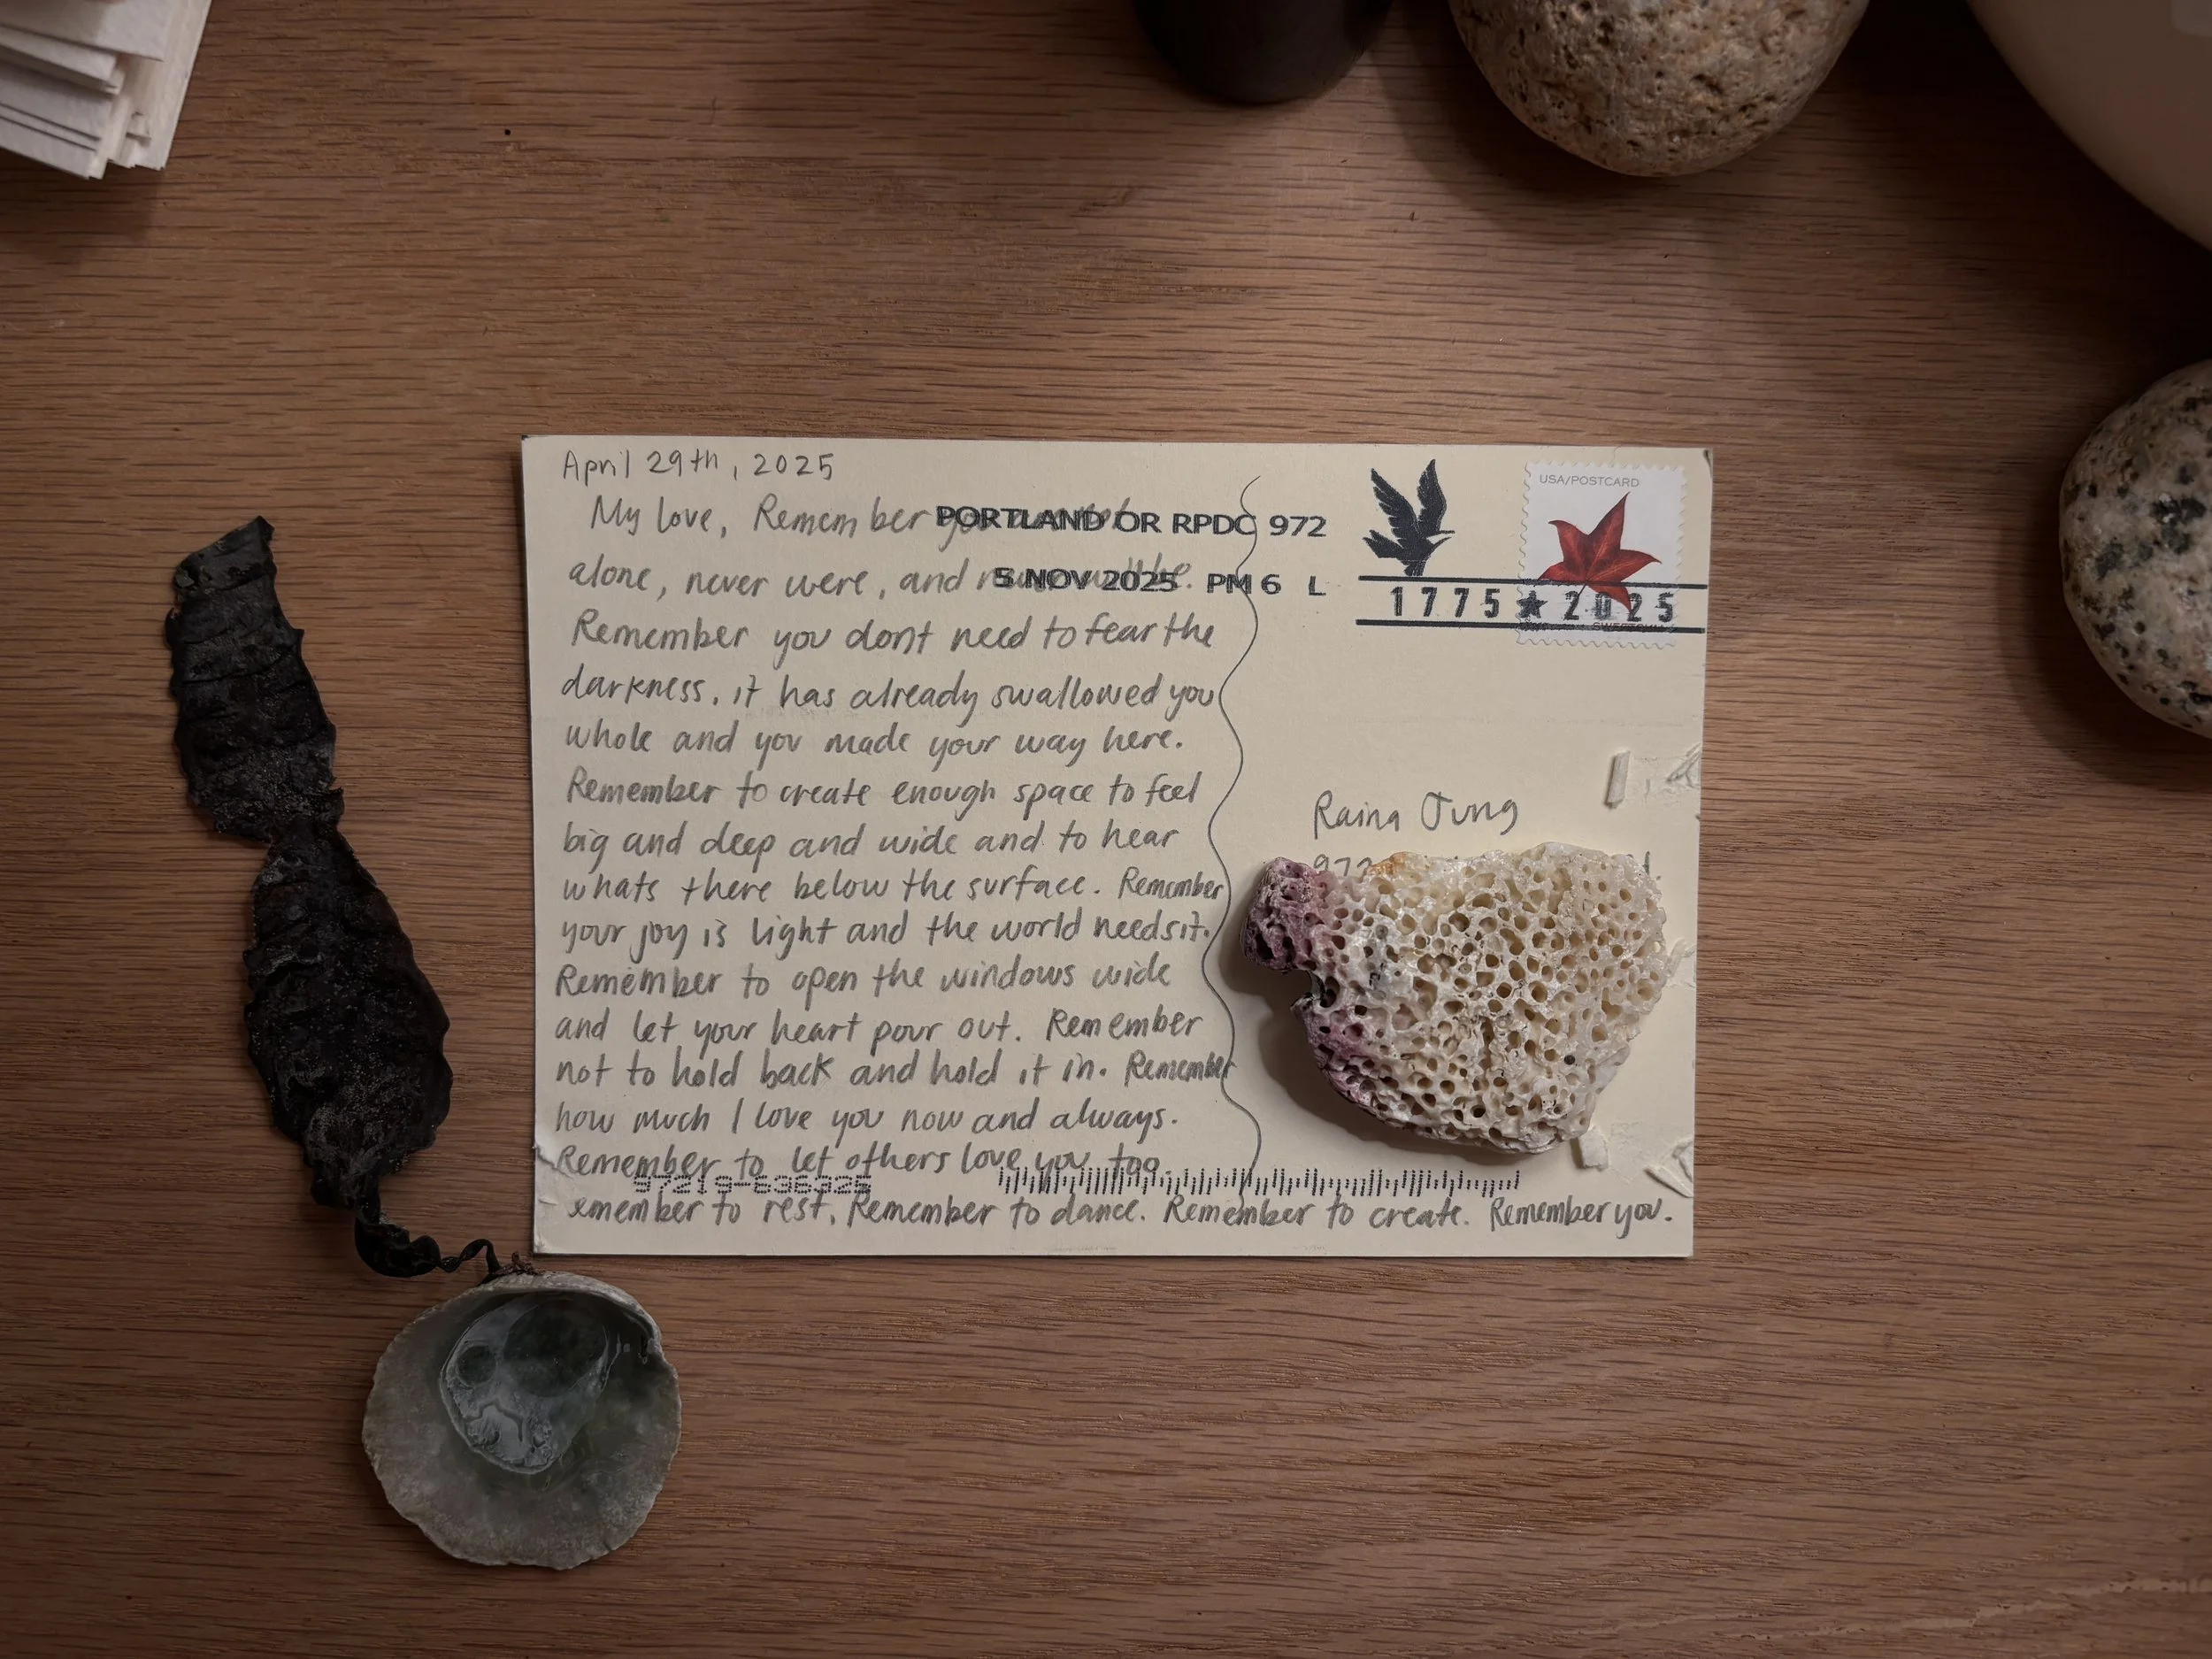 April 29th, 2025
My love, Remember
alone, never were, and
Remember you dont need to fear the
darkness, it has already swallowed you
whole and you made your way here.
Remember to create enough space to feel
big and deep and wide and to hear
whats there below the surface. Remember
your joy is light and the world needs it.
Remember to open the windows wide
and let your heart pour out. Remember
not to hold back and hold it in. Remember
how much I love you now and always.
Remember to let others love you too.
emember to rest. Remember to dance. Remember to create. Remember you.
PORTLAND OR RPDC 972
5 NOV 2025 PM 6 L
USA/POSTCARD
1775 ★ 2025
Raina Jung
972